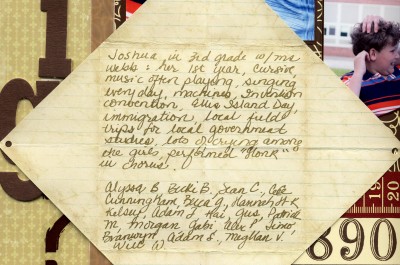 Joshua in 3rd grade w/ ms
Webb: her 1st year, cursive,
music often playing, singing
every day, machines, Invention
convention, Ellis Island Day,
immigration, local field
trips for local government
studies, lots of crying among
the girls, performed "Honk"
in chorus.
Alyssa B, Becki B, Sean C., Cole
Cunningham, Bryce G, Hannah H K
Kelsey, Adam L, Kai, Gus, Patrick
M, Morgan, Gabi, Alex P, Simo
Branwyn, Adam S., Meghan V.
Will W
19
890